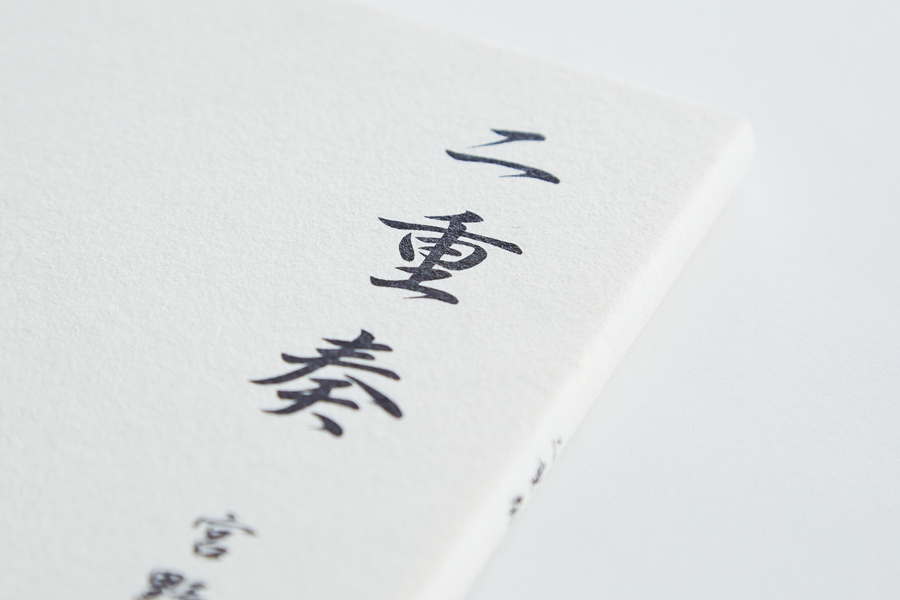 二重奏
宮野